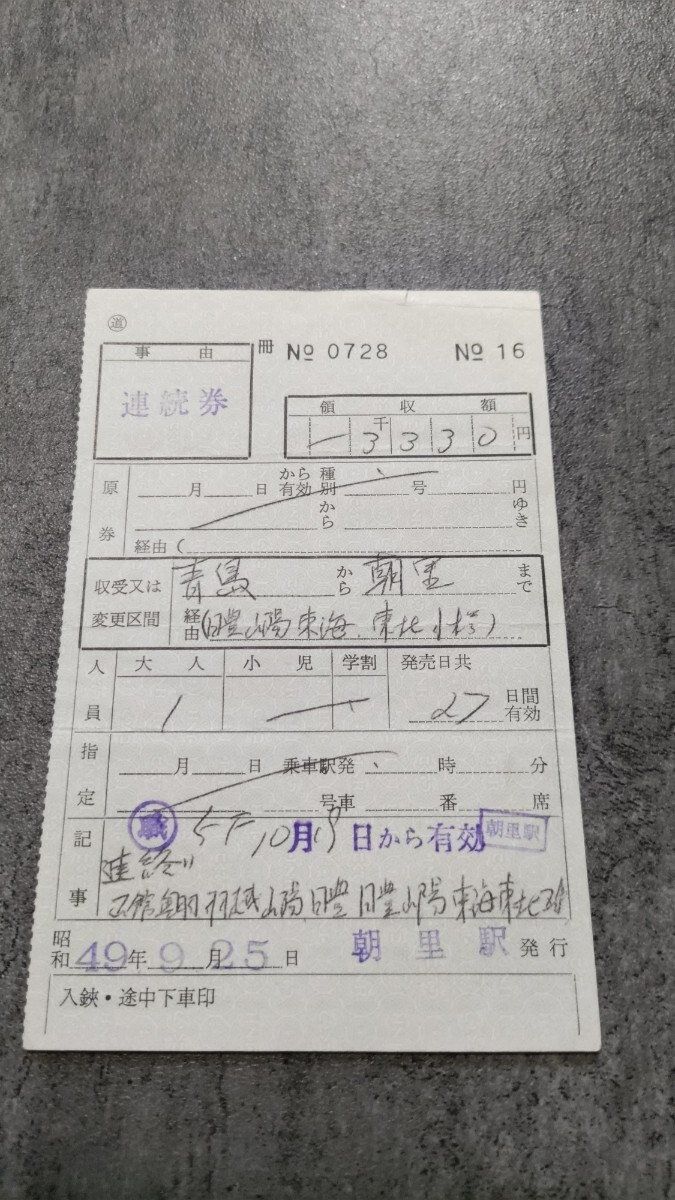 道
事 由 冊 № 0728 № 16
連続券
領 収 額
千
3330円
原券 月 日 から有効 種別 号 円
から ゆき
経由(
収受又は変更区間 青島 から 朝里 まで
経由(日豊山陽東海、東北
人員 大人 小児 学割 発売日共
1 27 日間有効
指定 月 日 乗車駅発 時 分
号車 番 席
記事 職 10月 日から有効 朝里駅
連続
山陽 日豊 日豊山陽東海東北
昭和49年9月25日 朝里駅 発行
入鋏・途中下車印